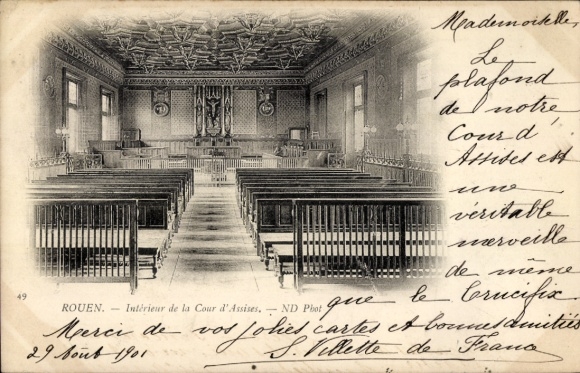 Mademoiselle,
Le
plafond
de notre
Cour d'
Assises est
une
véritable
merveille
de même
que le Crucifix.
49
ROUEN. — Intérieur de la Cour d'Assises. — ND Phot
Merci de vos jolies cartes et bonnes amitiés
29 Août 1901
S. Villette de France